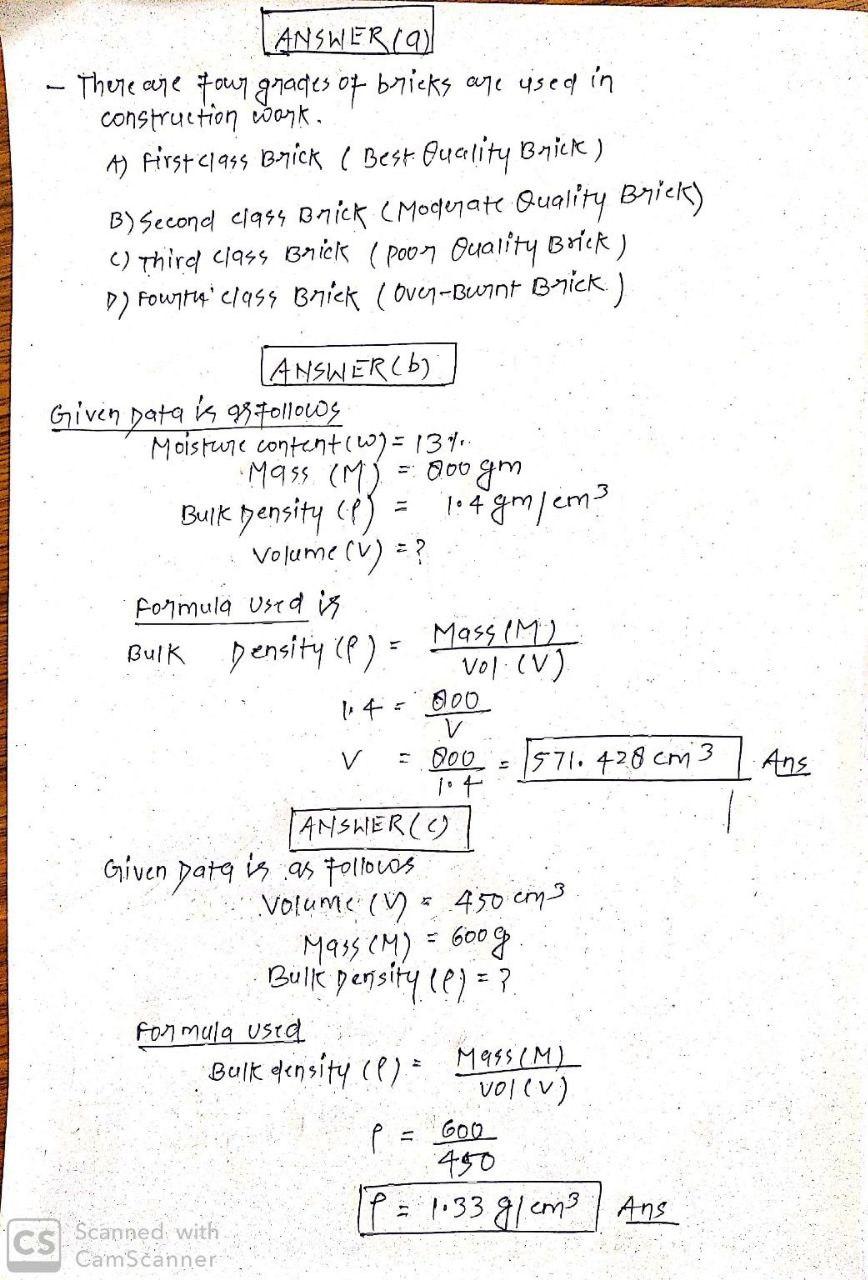 ANSWER (a)
- There are four grades of bricks are used in
construction work.
A) First class Brick ( Best Quality Brick )
B) Second class Brick ( Moderate Quality Brick)
C) Third class Brick ( poor Quality Brick )
D) Fourth class Brick ( Over-Burnt Brick )
ANSWER (b)
Given Data is as follows
Moisture content (w) = 13%.
Mass (M) = 800 gm
Bulk Density (ρ) = 1.4 gm/cm³
Volume (V) = ?
Formula Used is
Bulk Density (ρ) = Mass (M)
Vol. (V)
1.4 = 800
V
V = 800 = 571.428 cm3 Ans
1.4
ANSWER (C)
Given Data is as follows
Volume (V) = 450 cm3
Mass (M) = 600g
Bulk Density (ρ) = ?
Formula used
Bulk density (ρ) = Mass (M)
Vol (V)
ρ = 600
450
ρ = 1.33 g/cm3 Ans
CS Scanned with
CamScanner